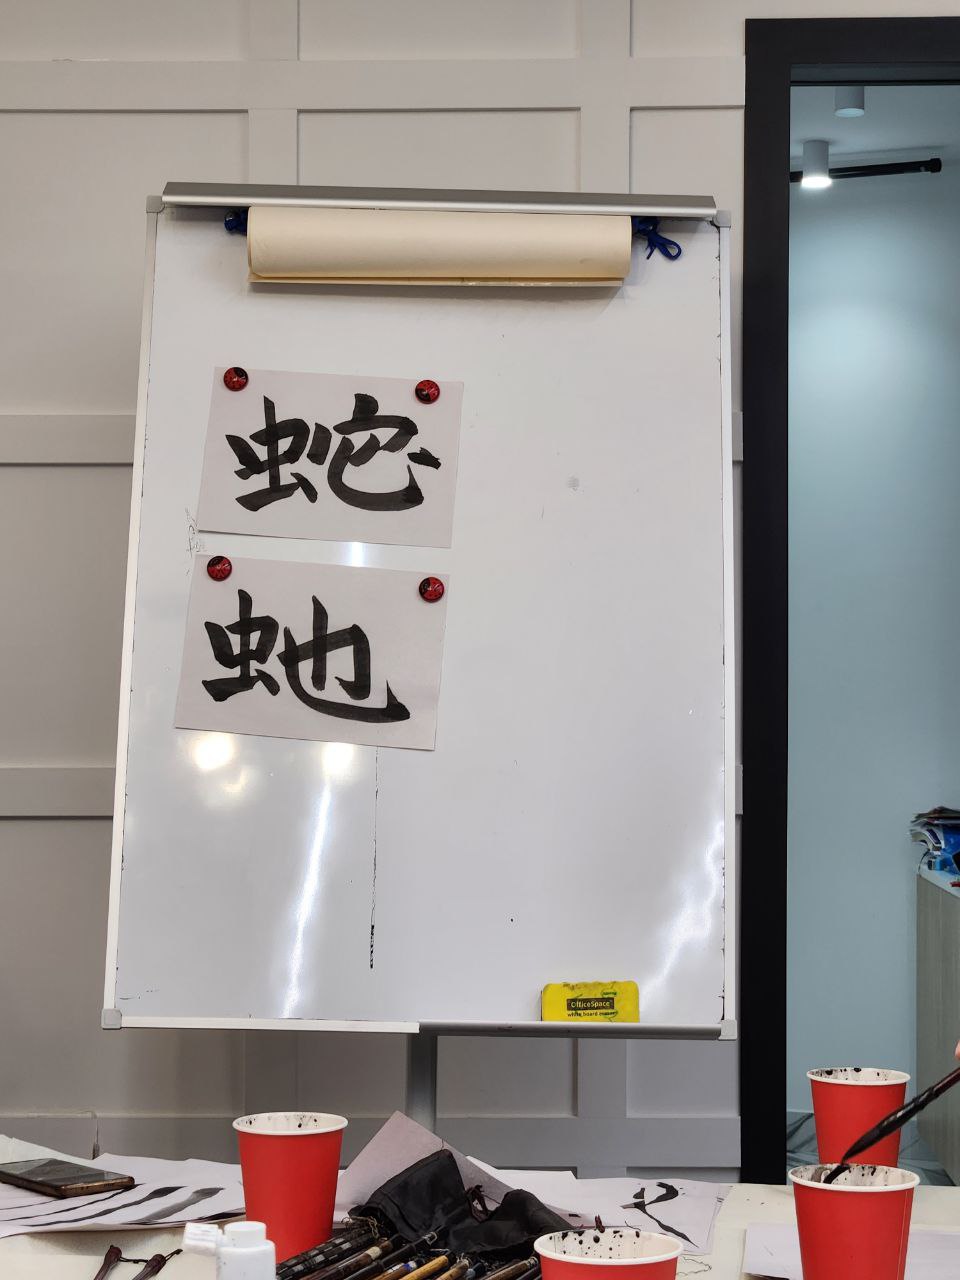 蛇
虵
OfficeSpace
white board eraser